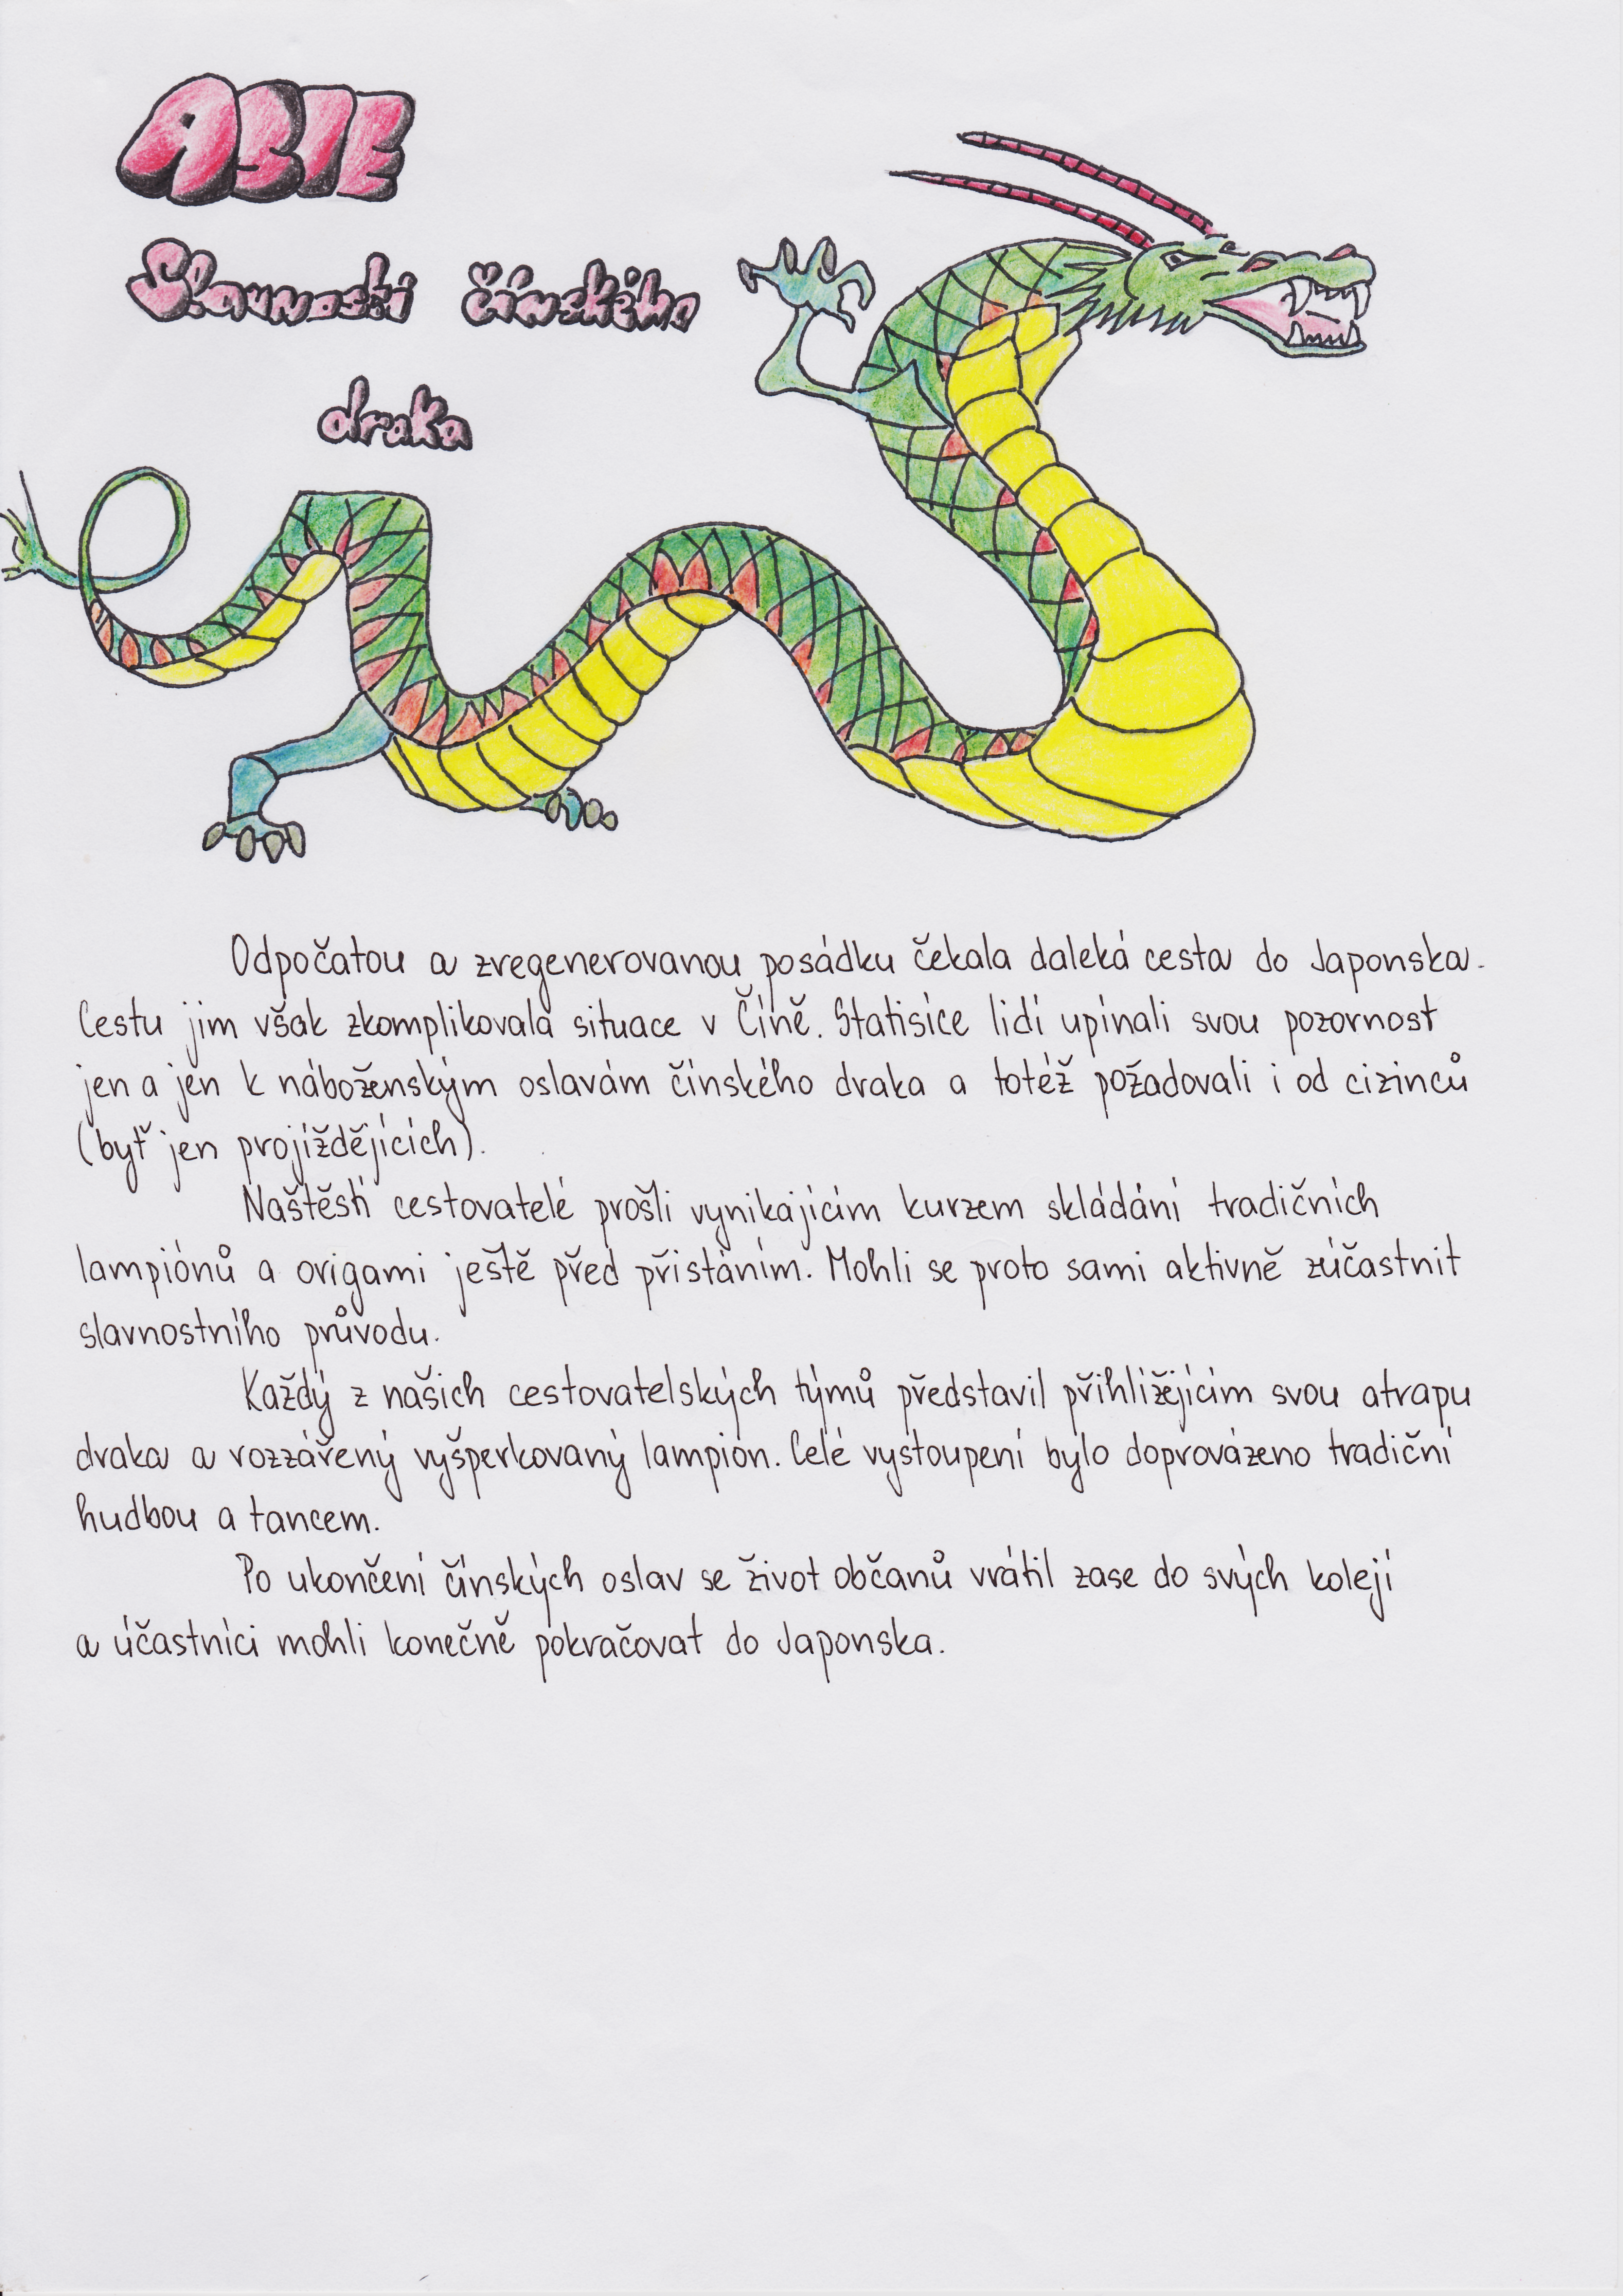 ASIE
Slavnosti čínského
draka
Odpočatou a zregenerovanou posádku čekala daleká cesta do Japonska.
Cestu jim však zkomplikovala situace v Číně. Statisíce lidí upínali svou pozornost
jen a jen k náboženským oslavám čínského draka a totéž požadovali i od cizinců
(byť jen projíždějících).
Naštěstí cestovatelé prošli vynikajícím kurzem skládání tradičních
lampiónů a origami ještě před přistáním. Mohli se proto sami aktivně zúčastnit
slavnostního průvodu.
Každý z našich cestovatelských týmů představil přihlížejícím svou atrapu
draka a rozzářený vyšperkovaný lampión. Celé vystoupení bylo doprovázeno tradiční
hudbou a tancem.
Po ukončení čínských oslav se život občanů vrátil zase do svých kolejí
a účastníci mohli konečně pokračovat do Japonska.